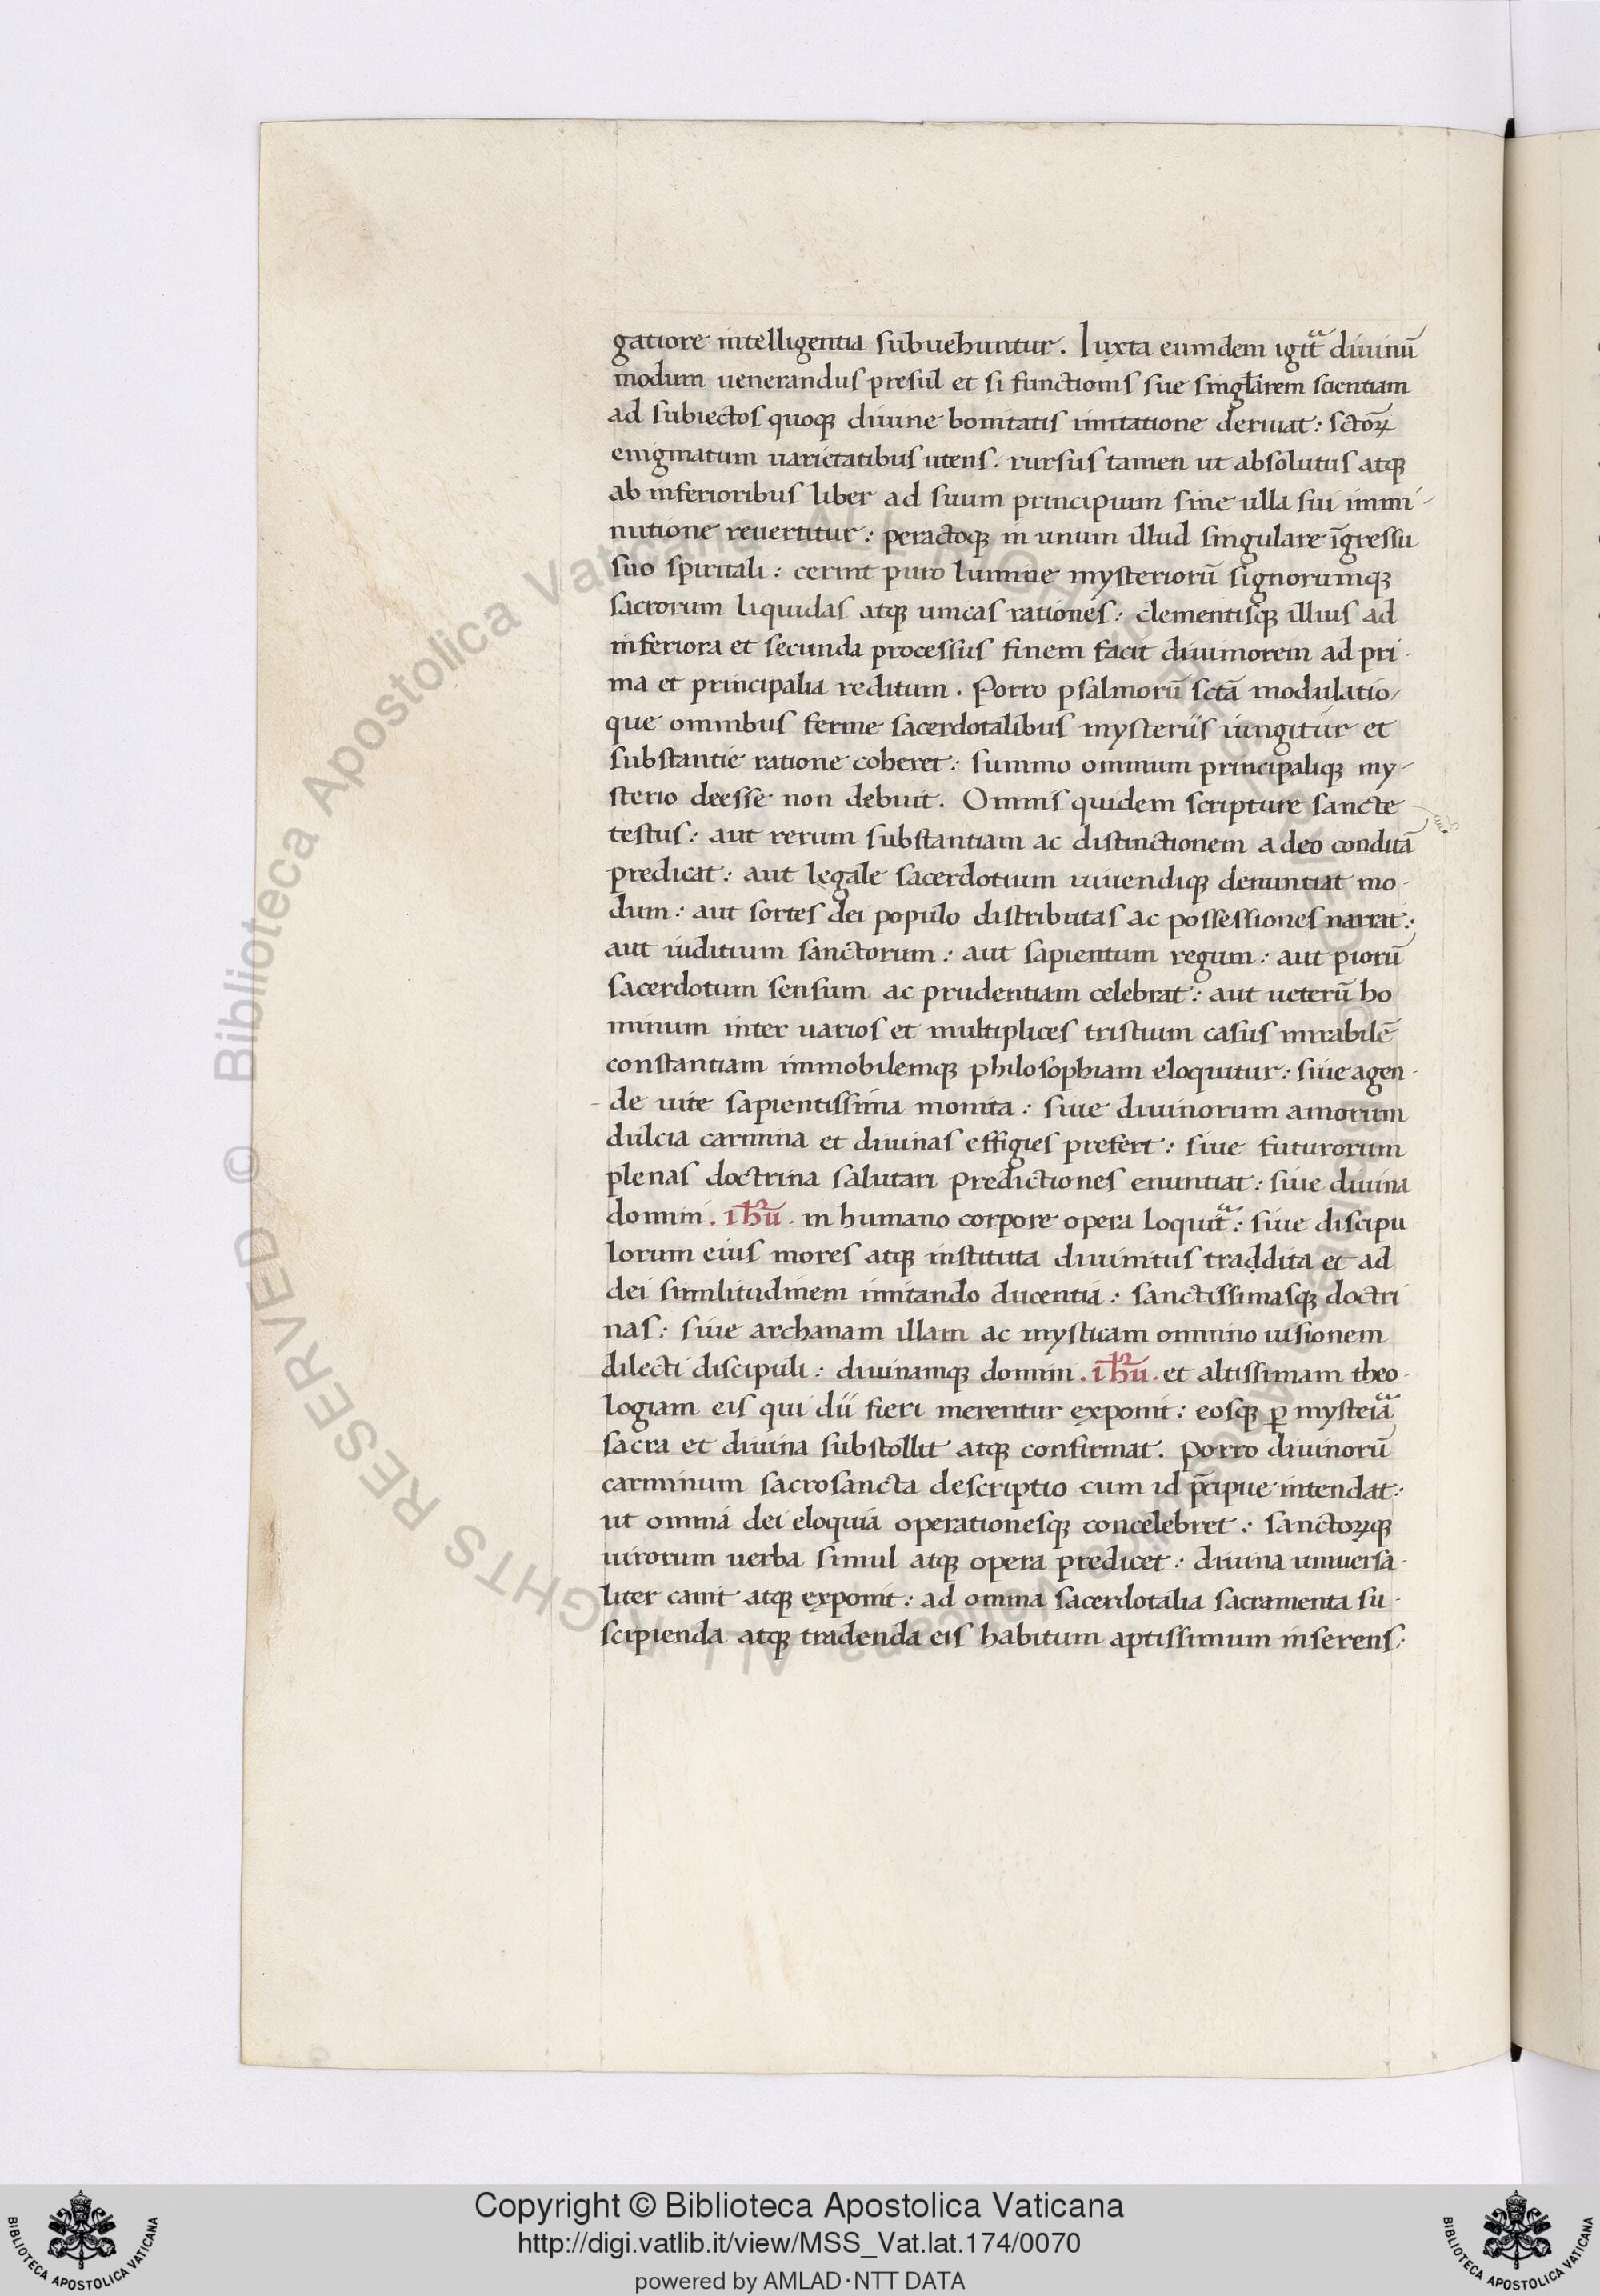 gatiore intelligentia subuehuntur. Iuxta eumdem igit᷑ diuinū
modum uenerandus presul et si functionis sue singl̄arem scientiam
ad subiectos quoqꝫ diuine bonitatis imitatione deriuat: sctōꝝ
enigmatum uarietatibus utens. rursus tamen ut absolutus atqꝫ
ab inferioribus liber ad suum principium sine ulla sui immi-
nutione reuertitur: peractoqꝫ in unum illud singulare īgressu
suo spiritali: cernit puro lumine mysteriorū signorumqꝫ
sacrorum liquidas atqꝫ unicas rationes: clementisqꝫ illius ad
inferiora et secunda processus finem facit diuiniorem ad pri-
ma et principalia reditum. Porro psalmorū sctā modulatio/
que omnibus ferme sacerdotalibus mysteriis iungitur et
substantie ratione coheret: summo omnium principaliqꝫ my-
sterio deesse non debuit. Omnis quidem scripture sancte
testus: aut rerum substantiam ac distinctionem a deo conditā
predicat: aut legale sacerdotium uiuendiqꝫ denuntiat mo-
dum: aut sortes dei populo distributas ac possessiones narrat:
aut iuditium sanctorum: aut sapientum regum: aut piorū
sacerdotum sensum ac prudentiam celebrat: aut ueterū ho
minum inter uarios et multiplices tristium casus mirabilē
constantiam immobilemqꝫ philosophiam eloquitur: siue agen-
de uite sapientissima monita: siue diuinorum amorum
dulcia carmina et diuinas effigies prefert: siue futurorum
plenas doctrina salutari predictiones enuntiat: siue diuina
domini. ihū. in humano corpore opera loquit᷑: siue discipu
lorum eius mores atqꝫ instituta diuinitus traddita et ad
dei similitudinem imitando ducentia: sanctissimasqꝫ doctri
nas: siue archanam illam ac mysticam omnino uisionem
dilecti discipuli: diuinamqꝫ domini. ihū. et altissimam theo-
logiam eis qui dii fieri merentur exponit: eosqꝫ ꝑ mysteia
sacra et diuina substollit atqꝫ confirmat. Porro diuinorū
carminum sacrosancta descriptio cum id p̄cipue intendat:
ut omnia dei eloquia operationesqꝫ concelebret: sanctoꝝqꝫ
uirorum uerba simul atqꝫ opera predicet: diuina uniuersa-
liter canit atqꝫ exponit: ad omnia sacerdotalia sacramenta su-
scipienda atqꝫ tradenda eis habitum aptissimum inserens:
© Biblioteca Apostolica Vaticana ALL RIGHTS RESERVED
Copyright © Biblioteca Apostolica Vaticana
http://digi.vatlib.it/view/MSS_Vat.lat.174/0070
powered by AMLAD·NTT DATA
BIBLIOTECA APOSTOLICA VATICANA
BIBLIOTECA APOSTOLICA VATICANA